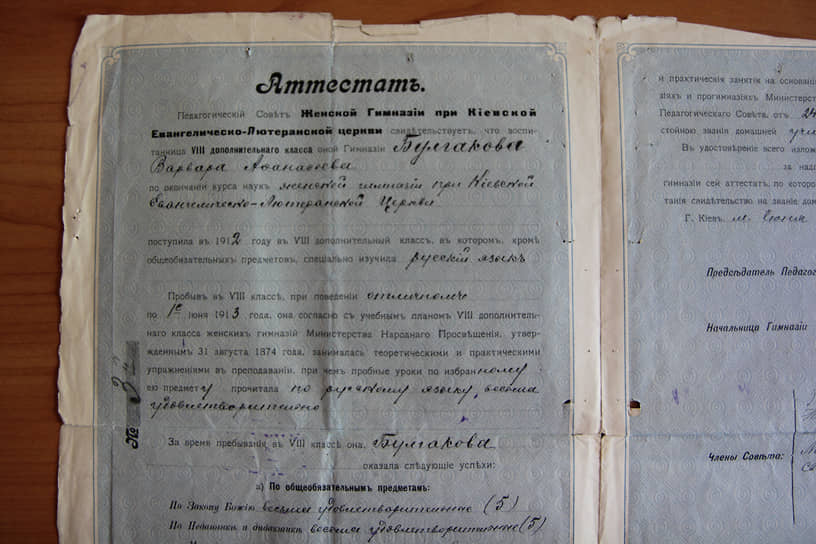 Аттестатъ.
Педагогическій Совѣтъ Женской Гимназіи при Кіевской
Евангелическо-Лютеранской церкви свидѣтельствуетъ, что воспи-
танница VIII дополнительнаго класса оной Гимназіи Булгакова
Варвара Аѳанасьева
по окончаніи курса наукъ женской гимназіи при Кіевской
Евангелическо-Лютеранской Церкви
поступила въ 1912 году въ VIII дополнительный классъ, въ которомъ, кромѣ
общеобязательныхъ предметовъ, спеціально изучила русскій языкъ
Пробывъ въ VIII классѣ, при поведеніи отличномъ
по 1е іюня 1913 года, она согласно съ учебнымъ планомъ VIII дополнитель-
наго класса женскихъ гимназій Министерства Народнаго Просвѣщенія, утвер-
жденнымъ 31 августа 1874 года, занималась теоретическими и практическими
упражненіями въ преподаваніи, при чемъ пробные уроки по избранному
ею предмету прочитала по русскому языку, весьма
удовлетворительно
№
За время пребыванія въ VIII классѣ она, Булгакова
оказала слѣдующіе успѣхи:
а) По общеобязательнымъ предметамъ:
По Закону Божію весьма удовлетворительные (5)
По Педагогикѣ и дидактикѣ весьма удовлетворительные (5)
и практическія занятія на основан
зіяхъ и прогимназіяхъ Министерст
Педагогическаго Совѣта, отъ 24
стойною званія домашней учи
Въ удостовѣреніе всего излож
за надл
гимназіи сей аттестатъ, по которо
танія свидѣтельство на званіе дом
Г. Кіевъ,
Предсѣдатель Педагог
Начальница Гимназіи
Члены Совѣта: